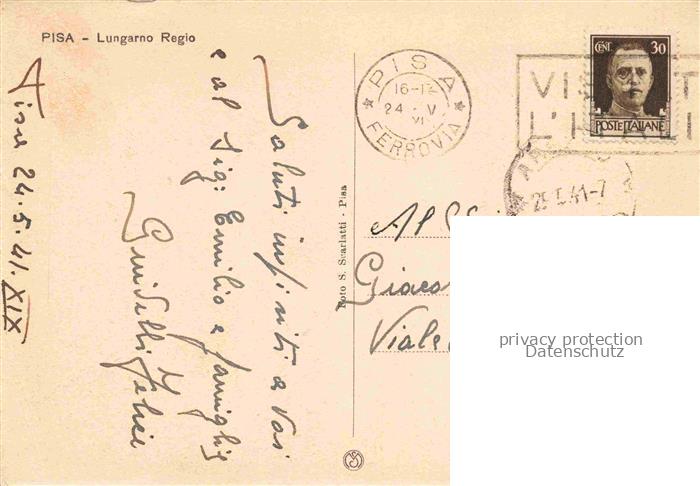 PISA - Lungarno Regio
Pisa 24.5.41.XIX
Saluti infiniti a Voi
e al Sig: Emilio e famiglia
Guidelli Felici
Foto S. Scarlatti - Pisa
PISA
16-17
24 V
FERROVIA
CENT. 30
POSTE ITALIANE
VI
L'I
41-7
Al
Viale
privacy protection
Datenschutz